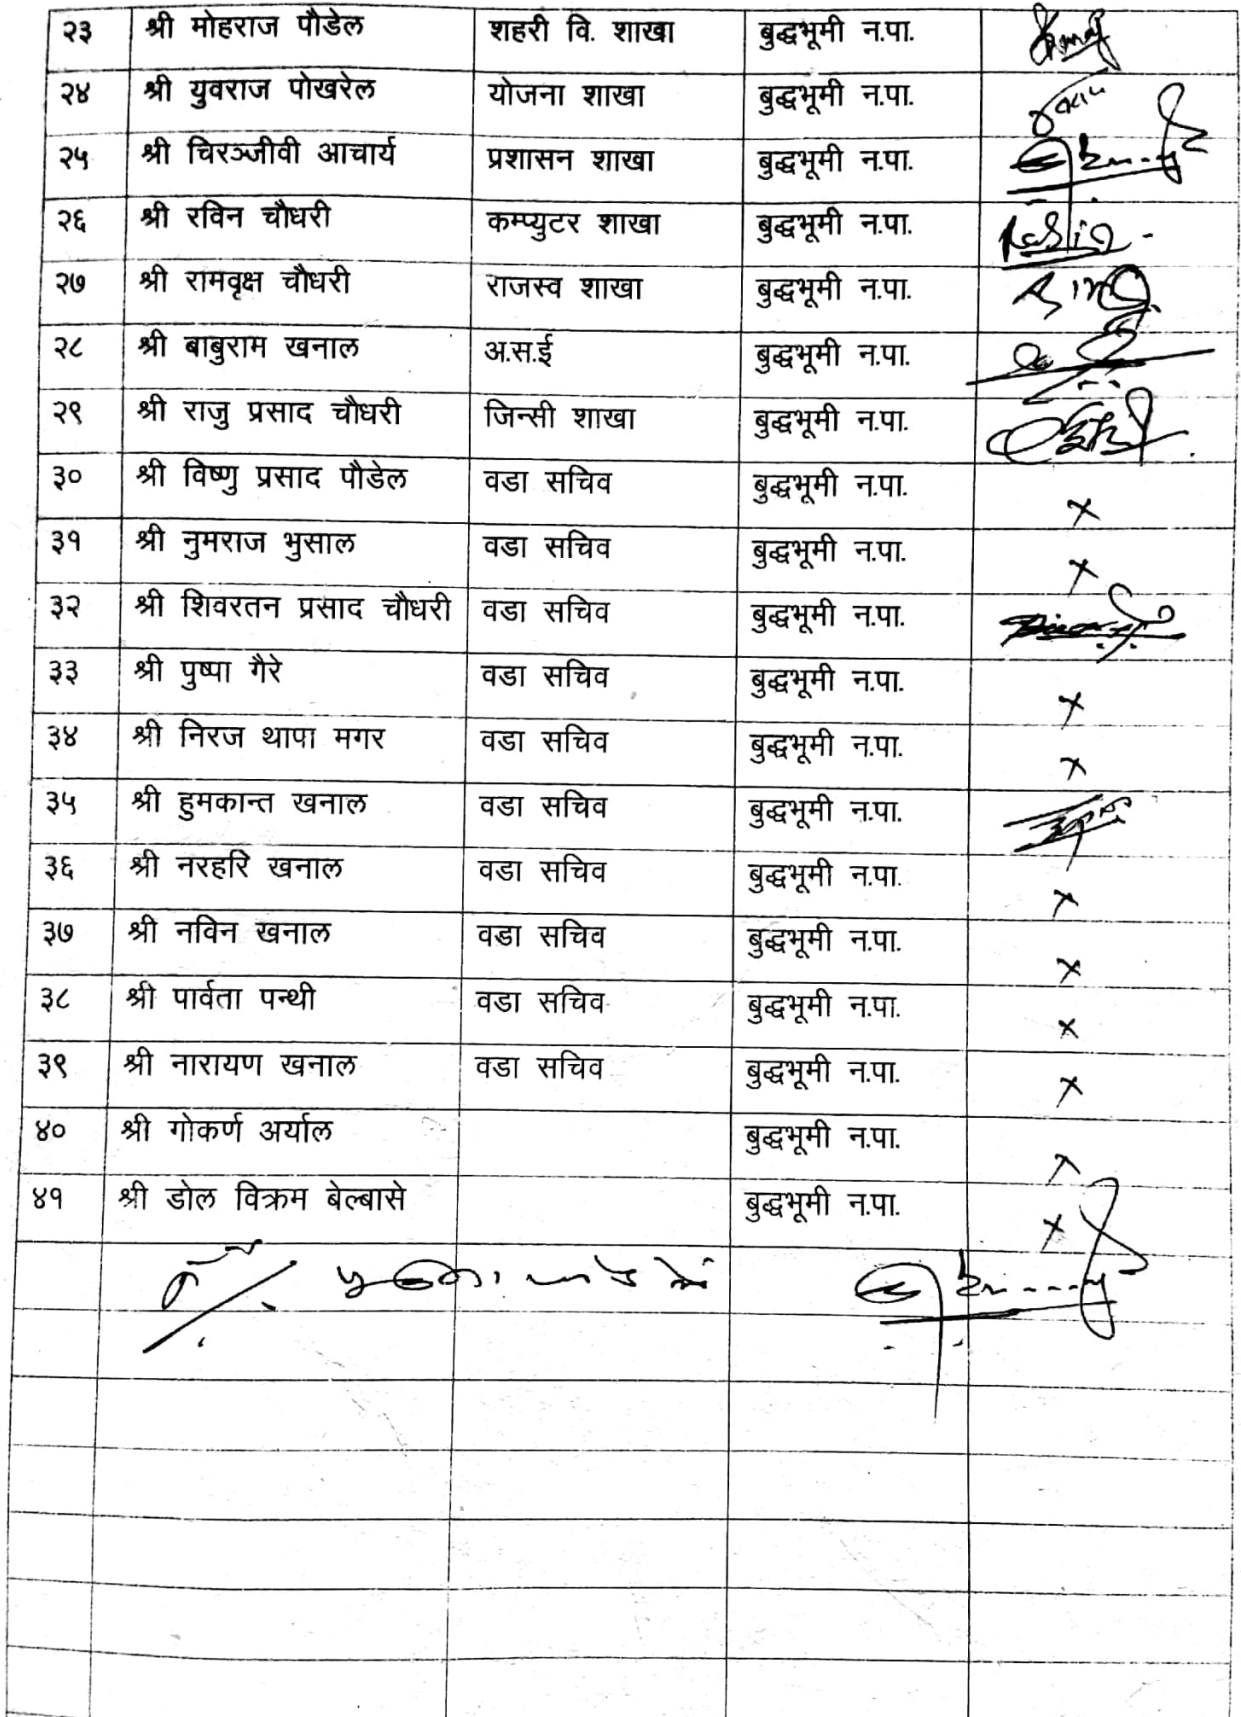 २३ श्री मोहराज पौडेल शहरी वि. शाखा बुद्धभूमी न.पा.
२४ श्री युवराज पोखरेल योजना शाखा बुद्धभूमी न.पा.
२५ श्री चिरञ्जीवी आचार्य प्रशासन शाखा बुद्धभूमी न.पा.
२६ श्री रविन चौधरी कम्प्युटर शाखा बुद्धभूमी न.पा.
२७ श्री रामवृक्ष चौधरी राजस्व शाखा बुद्धभूमी न.पा.
२८ श्री बाबुराम खनाल अ.स.ई बुद्धभूमी न.पा.
२९ श्री राजु प्रसाद चौधरी जिन्सी शाखा बुद्धभूमी न.पा.
३० श्री विष्णु प्रसाद पौडेल वडा सचिव बुद्धभूमी न.पा. ×
३१ श्री नुमराज भुसाल वडा सचिव बुद्धभूमी न.पा. ×
३२ श्री शिवरतन प्रसाद चौधरी वडा सचिव बुद्धभूमी न.पा.
३३ श्री पुष्पा गैरे वडा सचिव बुद्धभूमी न.पा. ×
३४ श्री निरज थापा मगर वडा सचिव बुद्धभूमी न.पा. ×
३५ श्री हुमकान्त खनाल वडा सचिव बुद्धभूमी न.पा.
३६ श्री नरहरि खनाल वडा सचिव बुद्धभूमी न.पा. ×
३७ श्री नविन खनाल वडा सचिव बुद्धभूमी न.पा. ×
३८ श्री पार्वता पन्थी वडा सचिव बुद्धभूमी न.पा. ×
३९ श्री नारायण खनाल वडा सचिव बुद्धभूमी न.पा. ×
४० श्री गोकर्ण अर्याल बुद्धभूमी न.पा. ×
४१ श्री डोल विक्रम बेल्बासे बुद्धभूमी न.पा. ×